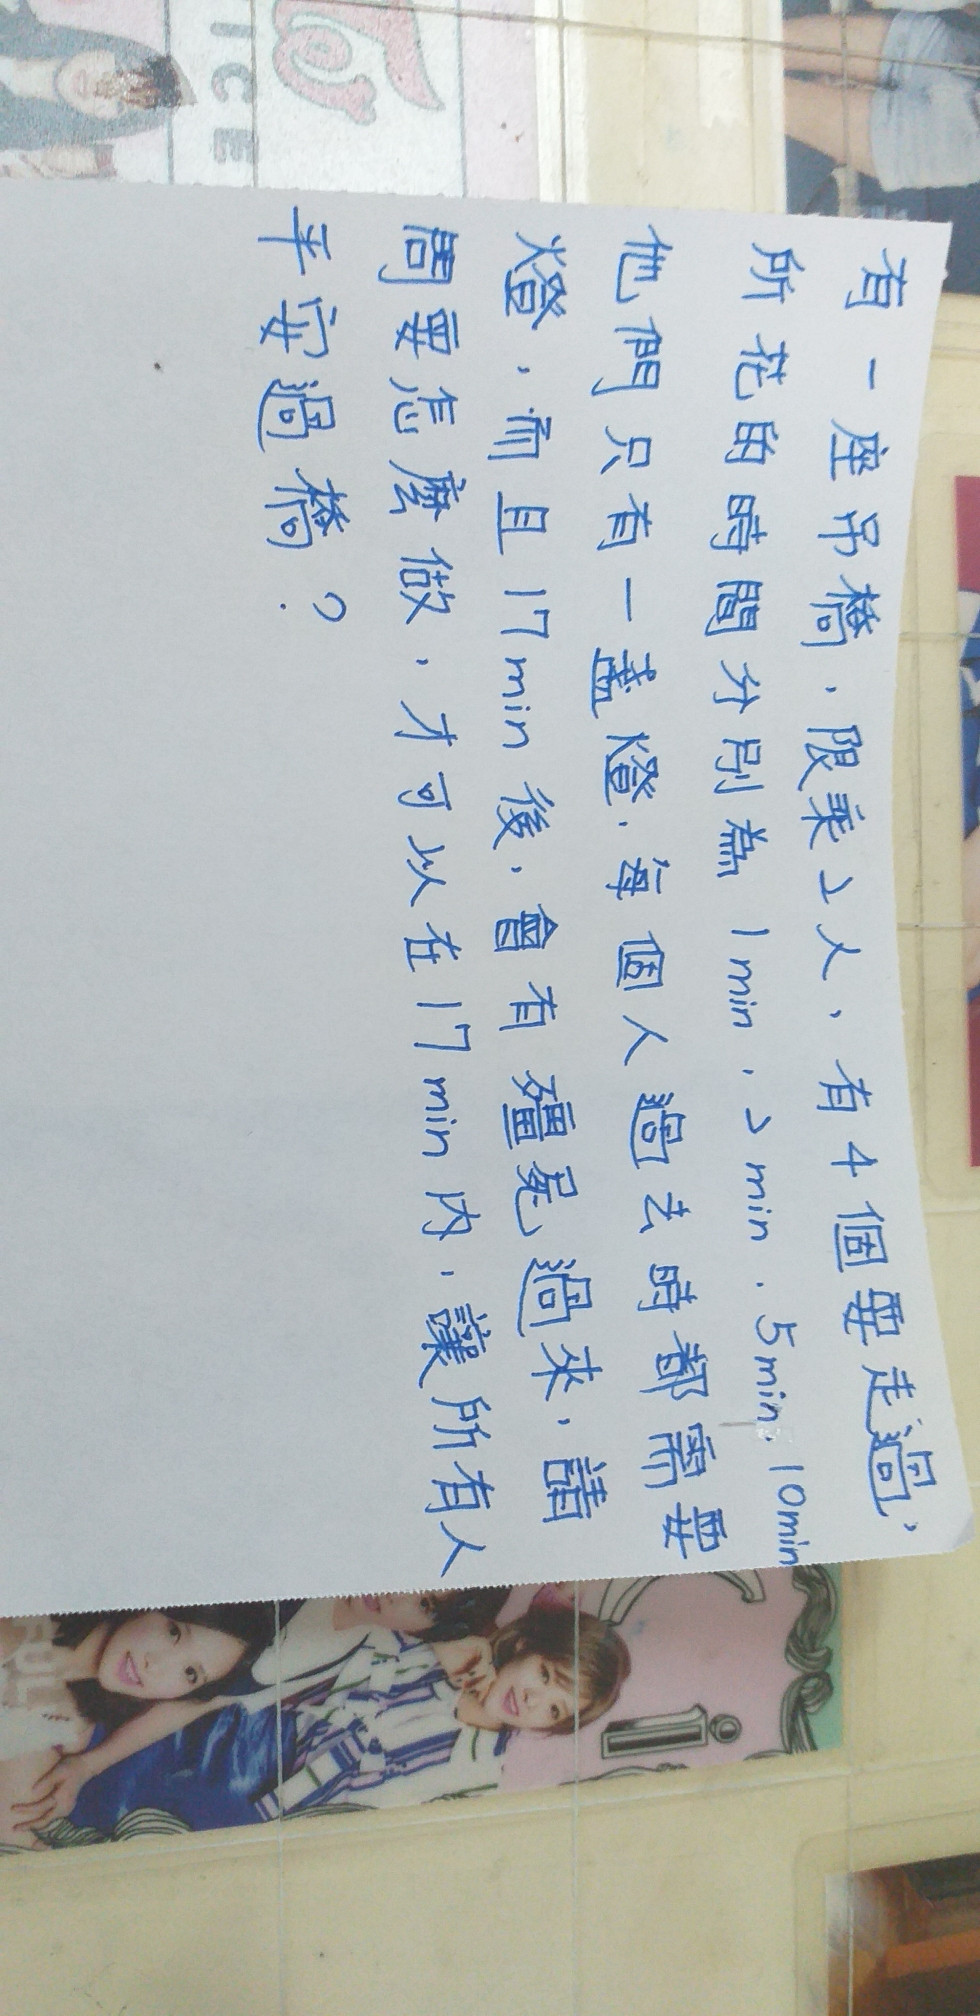 有一座吊橋,限乘2人,有4個要走過,
所花的時間分別為 1min,2min,5min,10min
他們只有一盞燈,每個人過去時都需要
燈,而且17min後,會有殭屍過來,請
問要怎麼做,才可以在17min內,讓所有人
平安過橋?
ICE
FUL